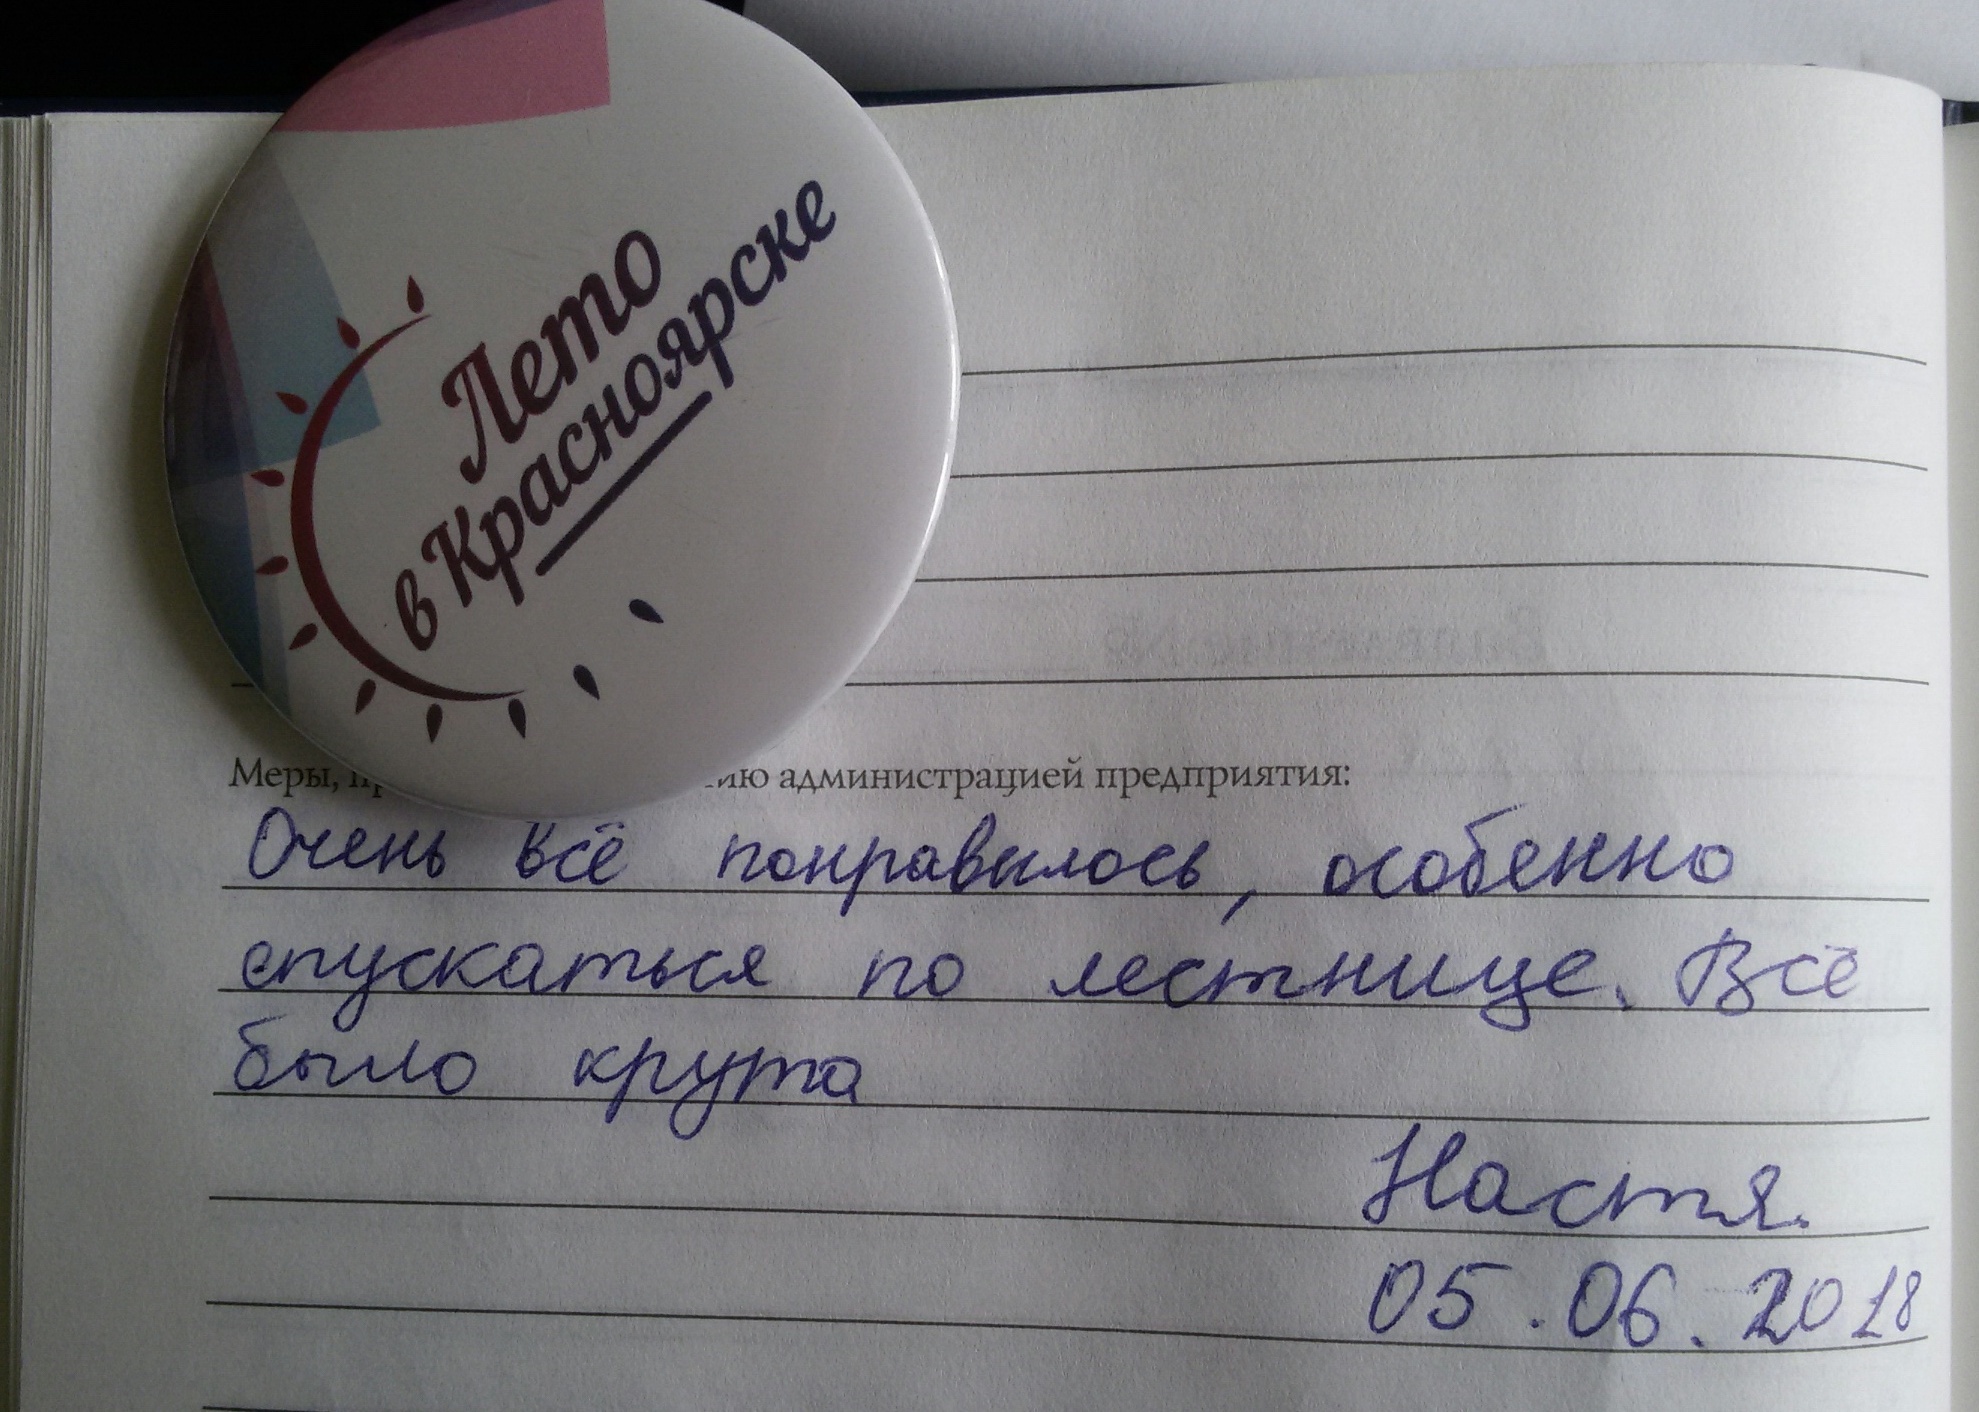 Лето
в Красноярске
Меры, администрацией предприятия:
Очень всё понравилось, особенно
спускаться по лестнице. Всё
было крута
Настя.
05.06.2018